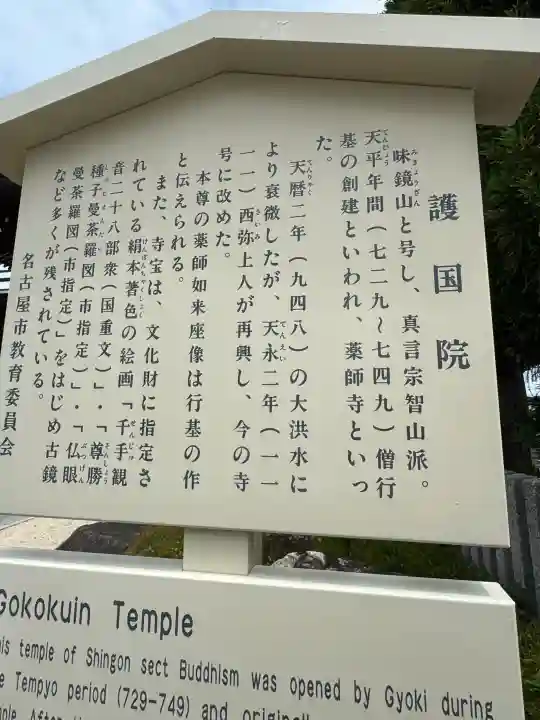 護国院
味鏡山と号し、真言宗智山派。
天平年間（七二九〜七四九）僧行
基の創建といわれ、薬師寺といっ
た。
天暦二年（九四八）の大洪水に
より衰微したが、天永二年（一一
一一）西弥上人が再興し、今の寺
号に改めた。
本尊の薬師如来座像は行基の作
と伝えられる。
また、寺宝は、文化財に指定さ
れている絹本著色の絵画「千手観
音二十八部衆（国重文）」・「尊勝
種子曼荼羅図（市指定）」・「仏眼
曼荼羅図（市指定）」をはじめ古鏡
など多くが残されている。
名古屋市教育委員会
Gokokuin Temple
his temple of Shingon sect Buddhism was opened by Gyoki during
e Tempyo period (729-749) and